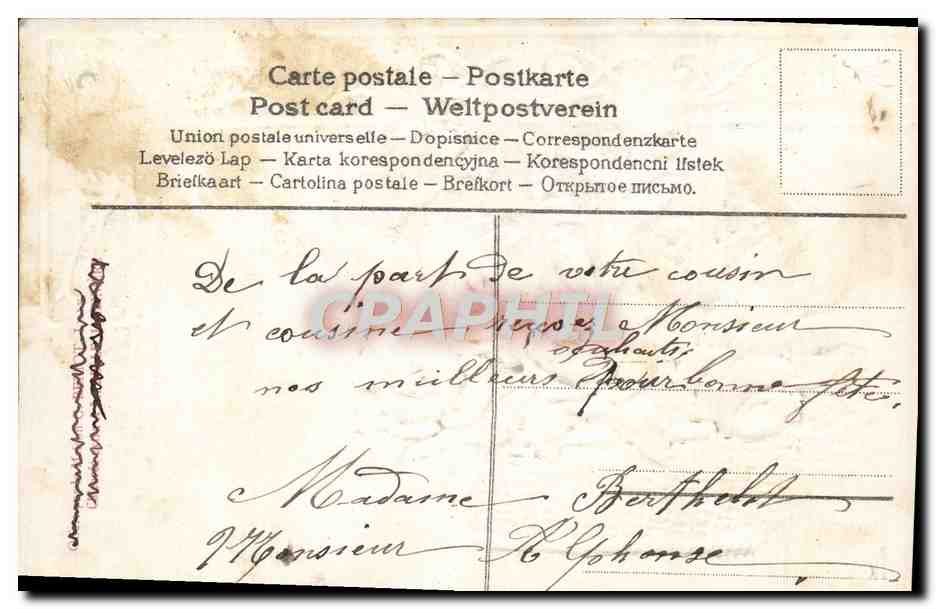 Carte postale – Postkarte
Post card — Weltpostverein
Union postale universelle — Dopisnice — Correspondenzkarte
Levelező Lap — Karta korespondencyjna — Korespondencni listek
Briefkaart — Cartolina postale — Brefkort — Открытое письмо.
De la part de votre cousin
et cousine reçvez Monsieur
souhaits
nos meilleurs pour bonne fête.
Madame Berthelet
Monsieur Alphonse
CRAPHIL